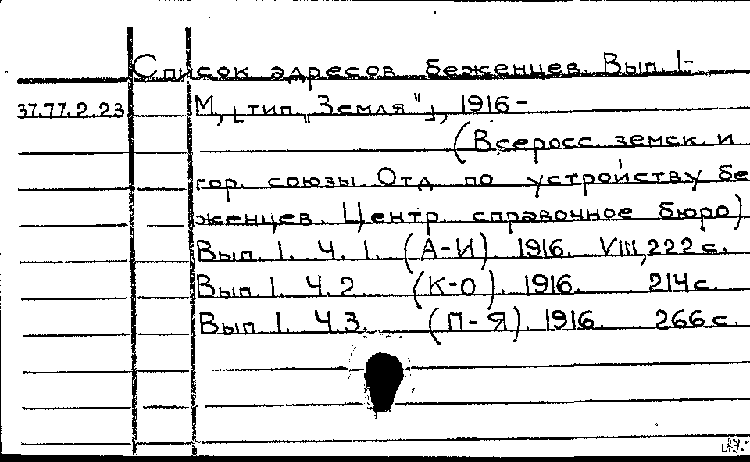 Список адресов беженцев. Вып. 1-
37.77.2.23 М., [тип. „Земля"], 1916-
(Всеросс. земск. и
гор. союзы. Отд. по устройству бе-
женцев. Центр. справочное бюро)
Вып. 1. Ч. 1. (А-И). 1916. VIII, 222 с.
Вып. 1. Ч. 2. (К-О). 1916. 214 с.
Вып. 1. Ч. 3. (П-Я). 1916. 266 с.